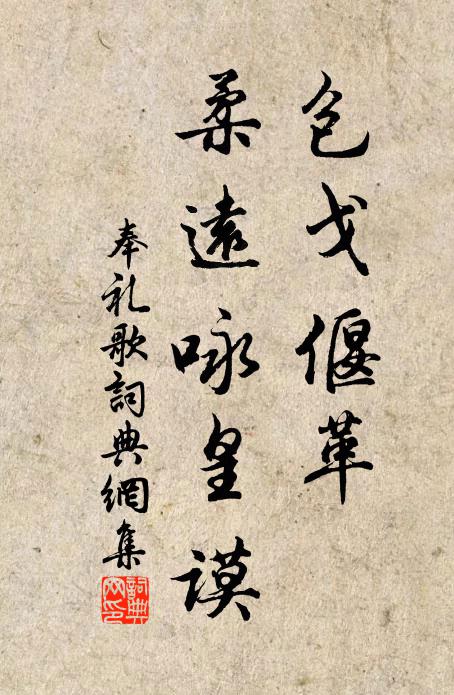 包戈偃革
柔遠咏皇謨
奉礼歌詞典網集
詞典网印